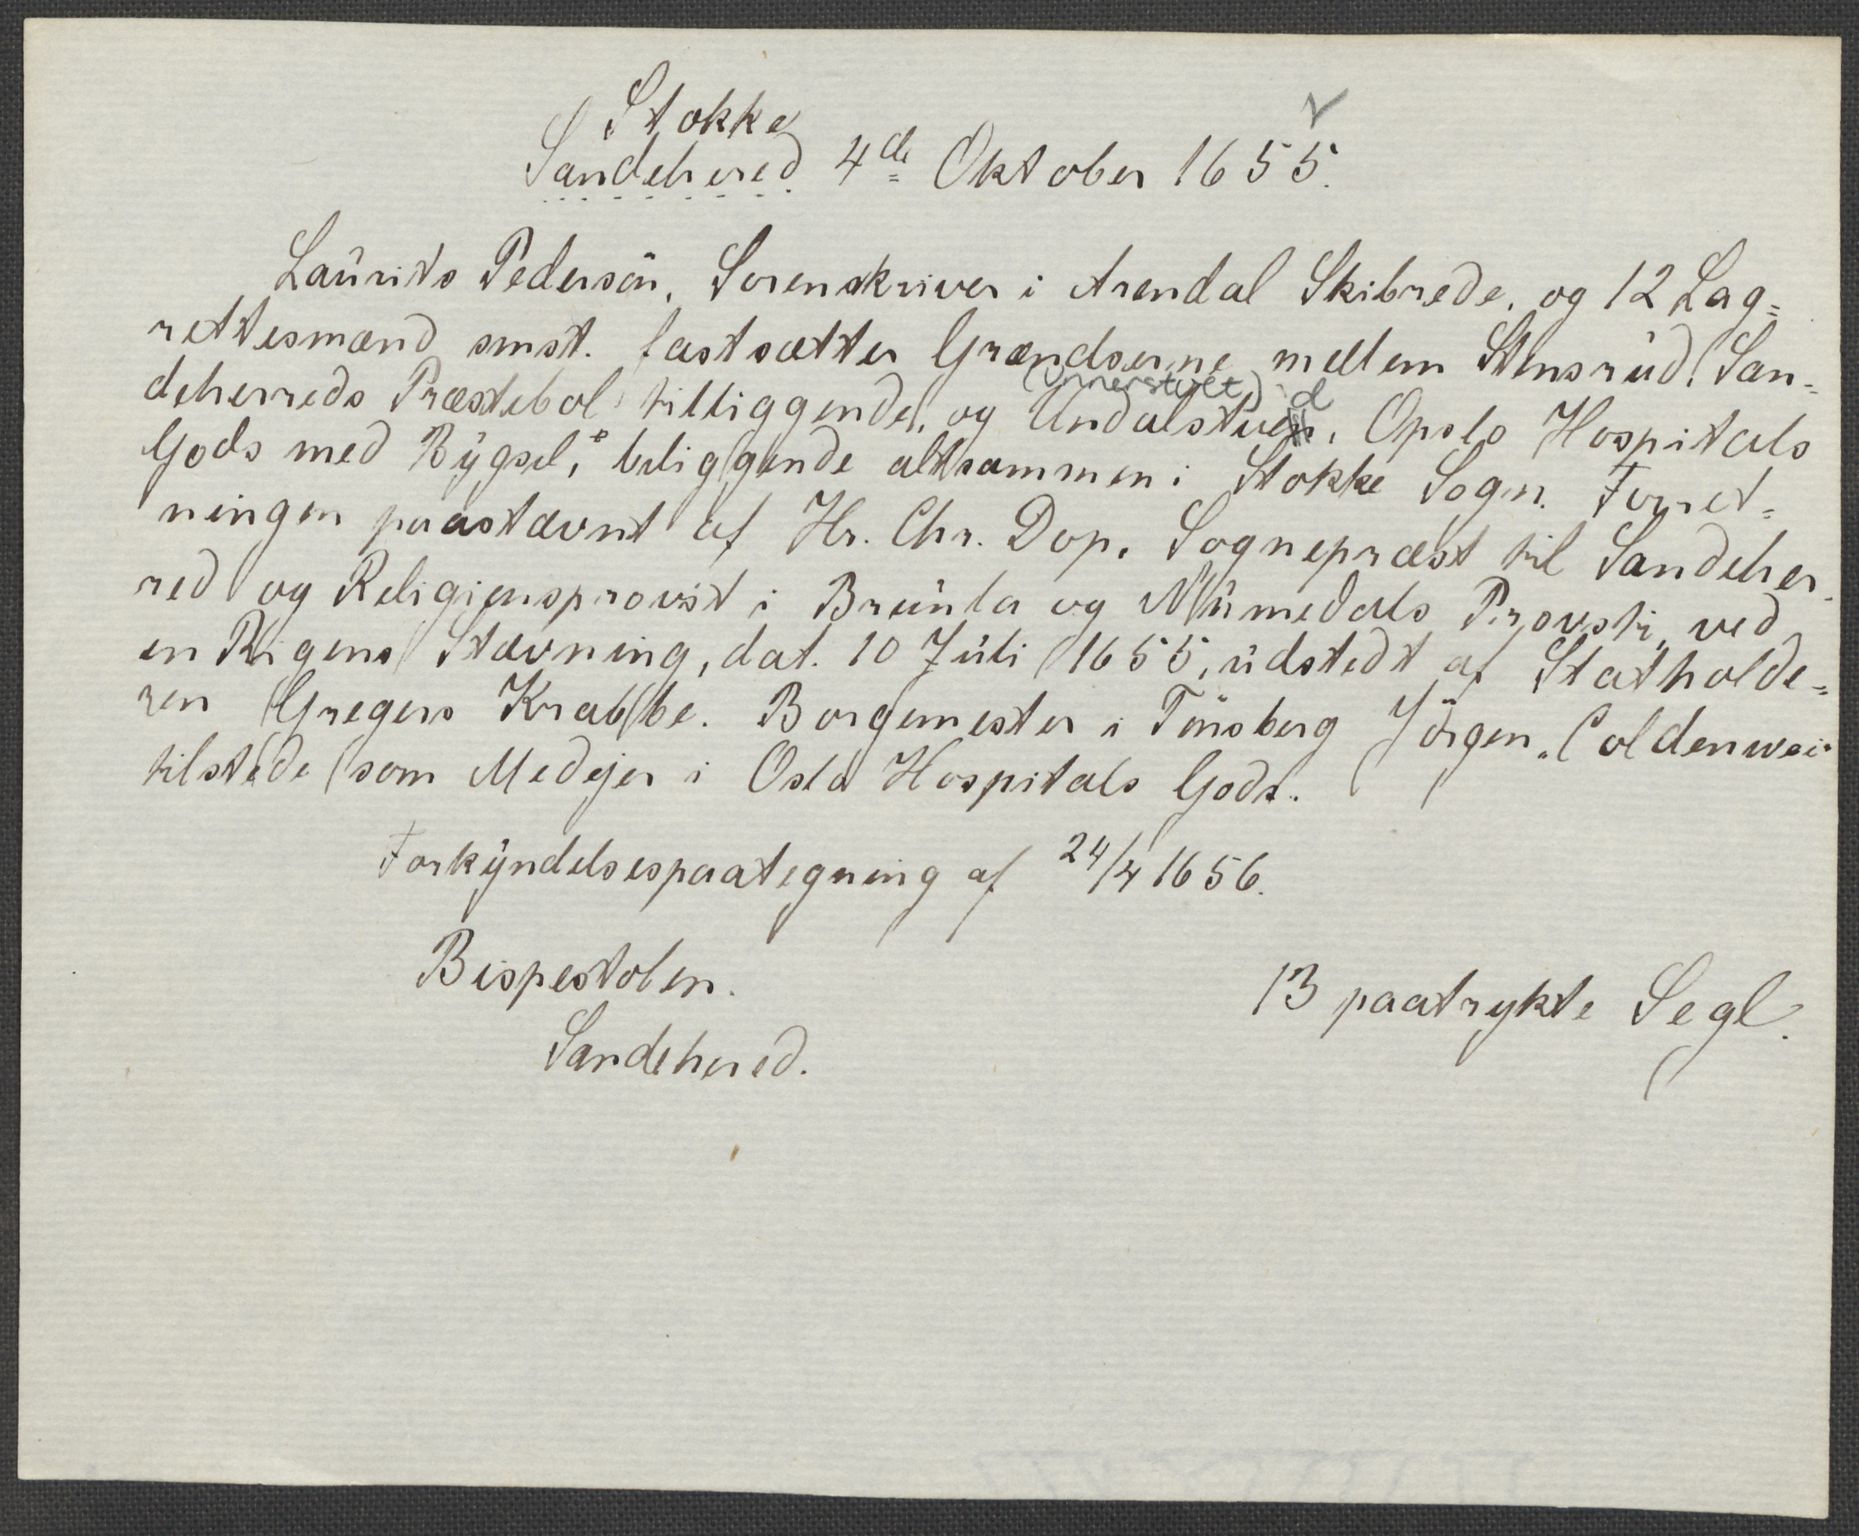 Stokke
Sandehered. 4de Oktober 1655.
Laurits Pedersön, Sorenskriver i Arendal Skibrede, og 12 Lag=
rettesmænd smst. fastsætter Grændserne mellem Stensrud, San=
(Unnerstvet) d
deherreds Præstebol tilliggende, og Undalstued, Opslo Hospitals
Gods med Bygsel, beliggende altsammen i Stokke Sogn. Forret=
ningen paastævnt af Hr. Chr. Dop, Sognepræst til Sandeher=
red og Religionsprovst i Brunla og Numedals Provsti, ved
en Rigens Stævning, dat. 10 Juli 1655, udstedt af Statholde=
ren Gregers Krabbe. Borgemester i Tönsberg Jörgen Coldenwei
tilstede som Medejer i Oslo Hospitals Gods.
Forkyndelsespaategning af 24/4 1656.
Bispestolen.
13 paatrykte Segl.
Sandehered.